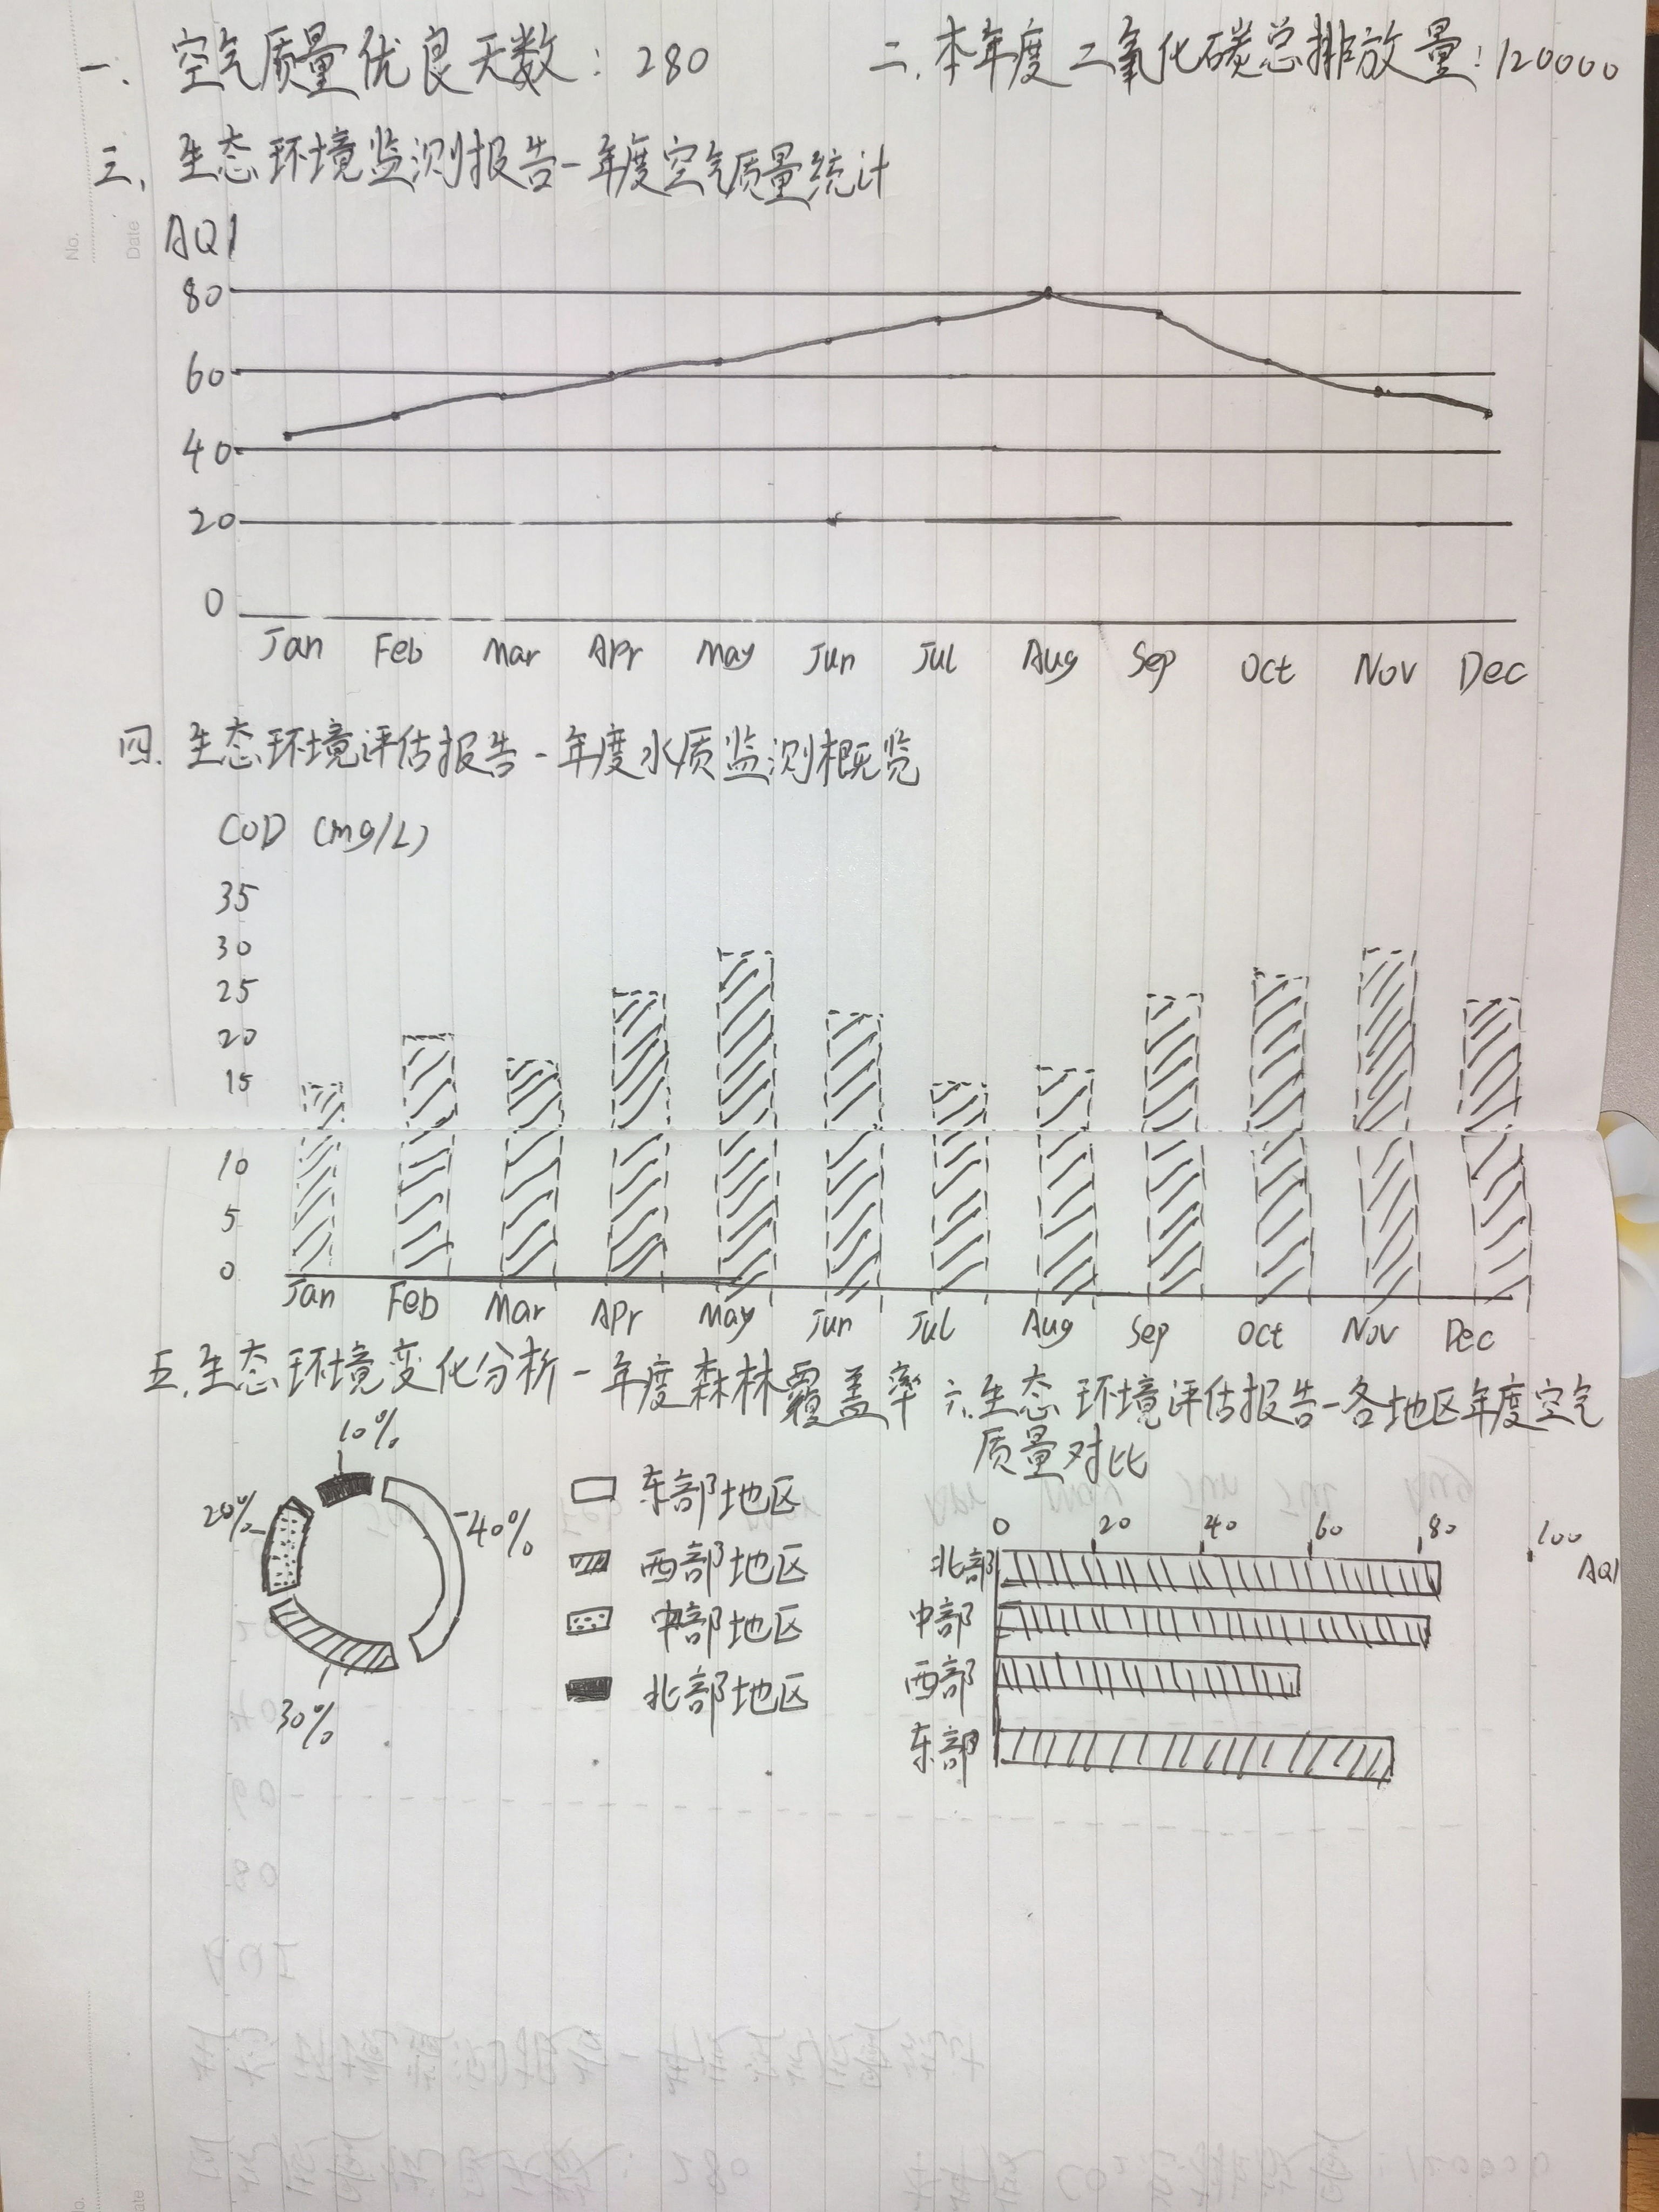 一. 空气质量优良天数: 280
二. 本年度二氧化碳总排放量: 120000
三. 生态环境监测报告-年度空气质量统计
No.
Date
AQI
80
60
40
20
0
Jan Feb Mar Apr May Jun Jul Aug Sep Oct Nov Dec
四. 生态环境评估报告-年度水质监测概览
COD (mg/L)
35
30
25
20
15
10
5
0
Jan Feb Mar Apr May Jun Jul Aug Sep Oct Nov Dec
五. 生态环境变化分析-年度森林覆盖率
10%
20%
40%
30%
东部地区
西部地区
中部地区
北部地区
六. 生态环境评估报告-各地区年度空气
质量对比
0 20 40 60 80 100
AQI
北部
中部
西部
东部